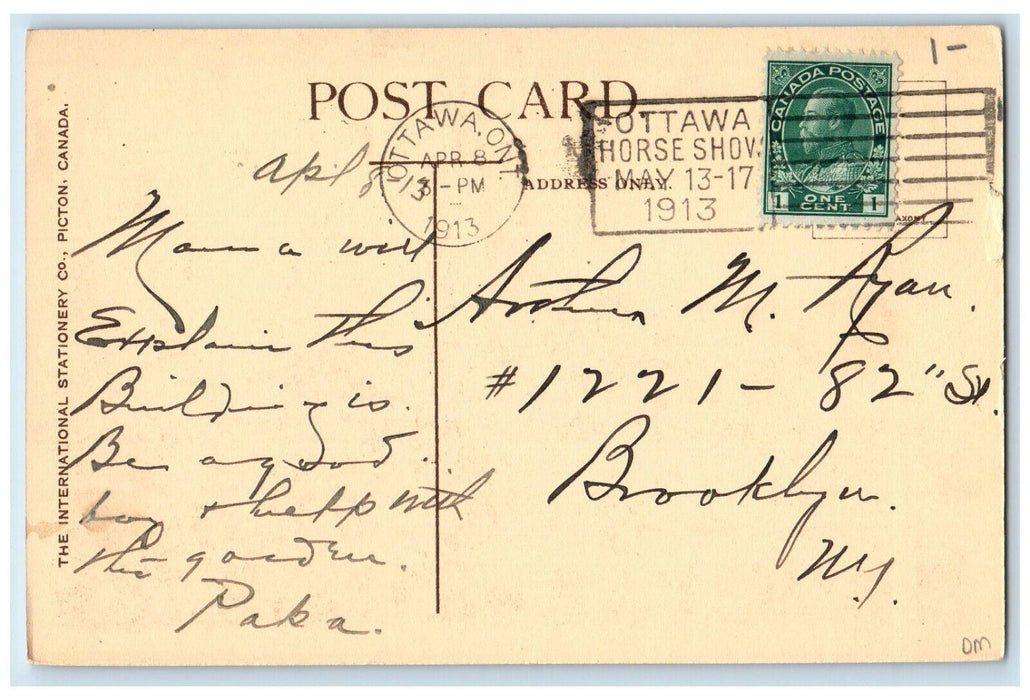 1-
POST CARD.
CANADA POSTAGE
1 ONE CENT 1
OTTAWA, ONT
APR 8
3 - PM
1913
OTTAWA
HORSE SHOW
MAY 13-17
1913
ADDRESS ONLY.
THE INTERNATIONAL STATIONERY CO., PICTON, CANADA.
Apl 8-13
Mama will
Explain this
Building is.
Be a good
boy & help with
the garden.
Papa.
Arthur M. Ryan.
#1221- 82" St.
Brooklyn.
N.Y.
DM